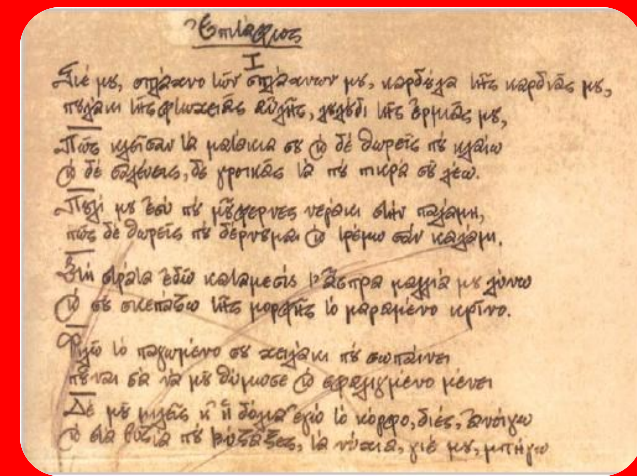 Ἐπιτάφιος
I
Γιέ μου, σπλάχνο τῶν σπλάχνων μου, καρδούλα τῆς καρδιᾶς μου,
πουλάκι τῆς φτωχειᾶς αὐλῆς, λουλούδι τῆς ἐρμιᾶς μου,
Πῶς κλεῖσαν τὰ ματάκια σου καὶ δέ θωρεῖς πού κλαίω
καὶ δέ σαλεύεις, δέ γροικᾶς τά πού πικρά σοῦ λέω.
μου ἐσύ πού μοῦφερνες νεράκι στήν παλάμη,
πῶς δέ θωρεῖς πού δέρνουμαι καὶ τρέμω σάν καλάμι.
Στή στράτα ἐδῶ καταμεσίς τ' ἄσπρα μαλλιά μου λύνω
καὶ σου σκεπάζω τῆς μορφῆς τό μαραμένο κρίνο.
Φιλῶ τό παγωμένο σου χειλάκι πού σωπαίνει
πούναι σά νά μοῦ θύμωσε καὶ σφαλιγμένο μένει
Δέ μοῦ μιλεῖς κ' ἡ δόλια ἐγώ τό κόρφο, διές, ἀνοίγω
καὶ στά βυζιά πού βύζαξες, τά νύχια, γιέ μου, μπήγω